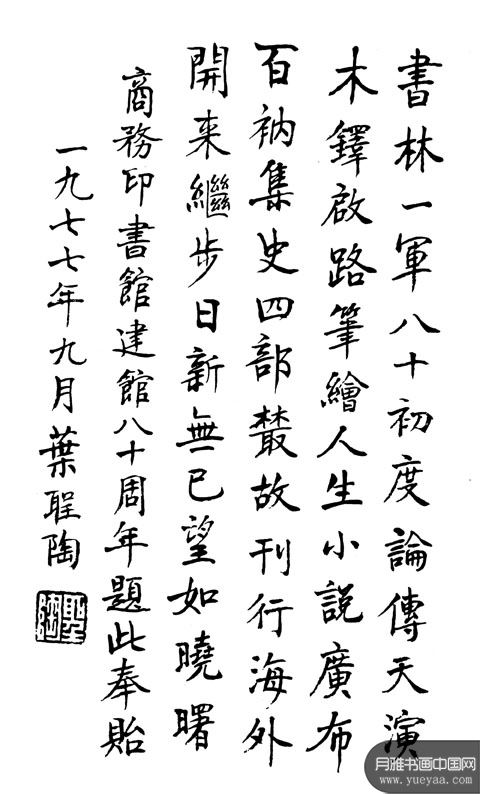 書林一軍八十初度論傳天演
木鐸啟路筆繪人生小說廣布
百衲集史四部叢故刊行海外
開來繼步日新無已望如曉曙
商務印書館建館八十周年題此奉貽
一九七七年九月葉聖陶
聖陶
月雅书画中国网
www.yueyaa.com